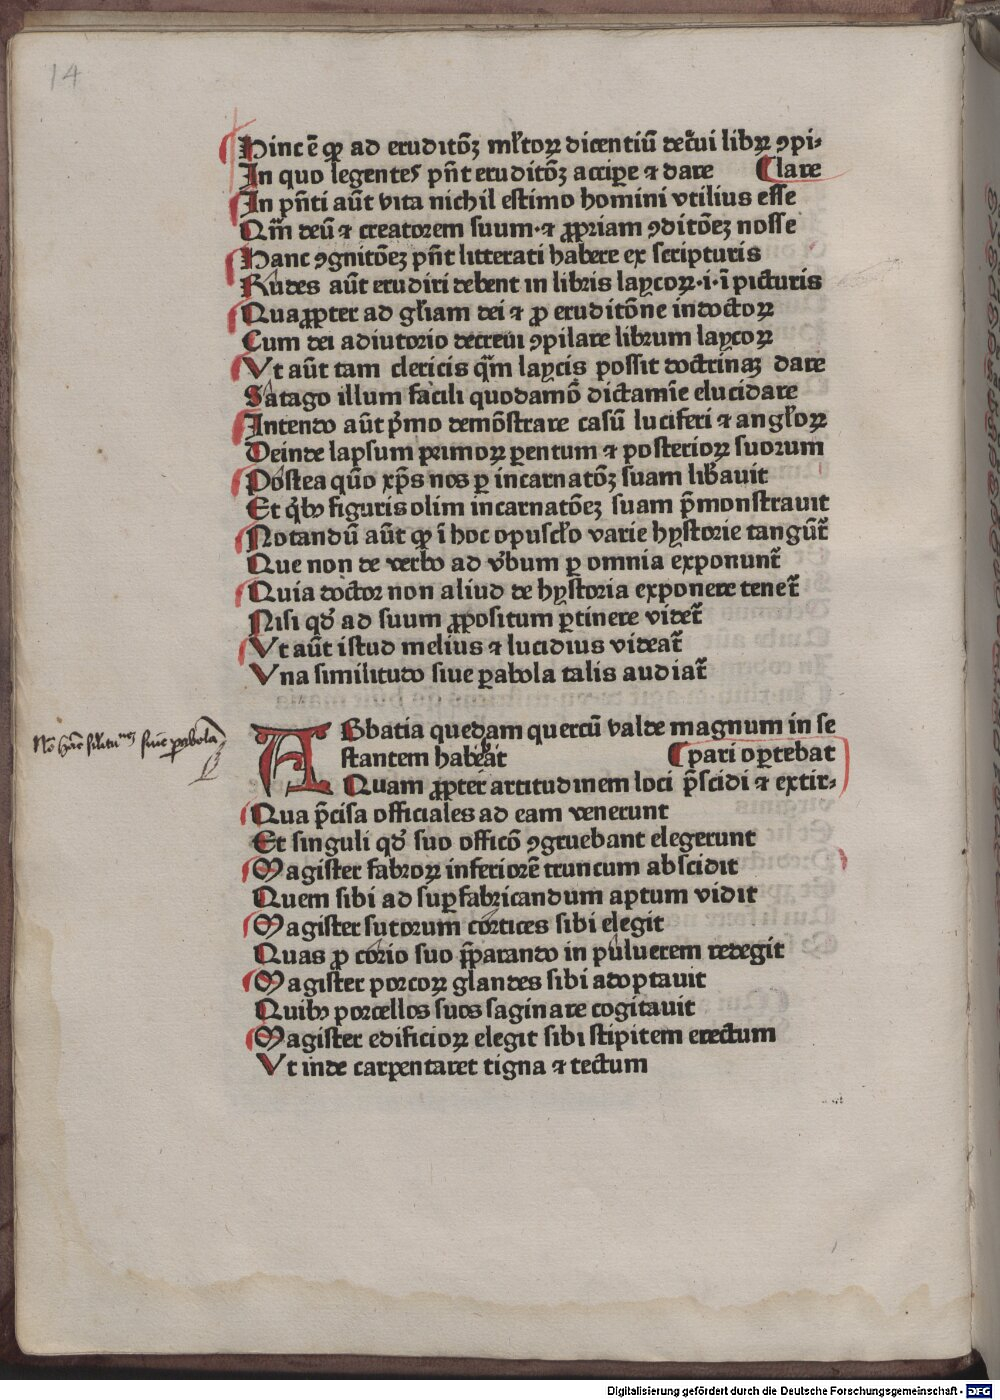 14
Hinc ē ꝙ ad eruditōꝫ ml̄toꝝ dicentiū dec̄ui libꝝ ꝯpi⸗
In quo legentes pn̄t eruditōꝫ accip̱e ⁊ dare ¶lare
In pn̄ti aūt vita nichil estimo homini vtilius esse
Qm̄ deū ⁊ creatorem suum· ⁊ ꝓpriam ꝯditōeꝫ nosse
Hanc ꝯgnitōeꝫ pn̄t litterati habere ex scripturis
Rudes aūt erudiri debent in libris laycoꝝ·i·ī picturis
Quaꝓpter ad gl̄iam dei ⁊ ꝓ eruditōne indoctoꝝ
Cum dei adiutorio decreui ꝯpilare librum laycoꝝ
Vt aūt tam clericis qm̄ laycis possit doctrinaꝫ dare
Satago illum facili quodamō dictamīe elucidare
Intendo aūt pͥmo demōstrare casū luciferi ⁊ angl̄oꝝ
Deinde lapsum primoꝝ ꝑentum ⁊ posterioꝝ suorum
Postea quō xp̄s nos ꝑ incarnatōꝫ suam lib̄auit
Et qͥbꝰ figuris olim incarnatōeꝫ suam p̄monstrauit
Notandū aūt ꝙ ī hoc opuscl̄o varie hystorie tangūt᷑
Que non de verbo ad v̄bum ꝑ omnia exponunt᷑
Quia doctor non aliud de hystoria exponere tenet᷑
Nisi qd̄ ad suum ꝓpositum ꝑtinere videt᷑
Vt aūt istud melius ⁊ lucidius videat᷑
Vna similitudo siue ꝑabola talis audiat᷑
Abbatia quedam quercū valde magnum in se
stantem habebat ¶pari oꝑtebat
Quam ꝓpter artitudinem loci p̄scidi ⁊ extir⸗
Qua p̄cisa officiales ad eam venerunt
Et singuli qd̄ suo officō ꝯgruebant elegerunt
Magister fabroꝝ inferiorē truncum abscidit
Quem sibi ad suꝑfabricandum aptum vidit
Magister sutorum cortices sibi elegit
Quas ꝓ corio suo p̄ꝑando in puluerem redegit
Magister porcoꝝ glandes sibi adoptauit
Quibꝰ porcellos suos saginare cogitauit
Magister edificioꝝ elegit sibi stipitem erectum
Vt inde carpentaret tigna ⁊ tectum
siue ꝑabolā
Digitalisierung gefördert durch die Deutsche Forschungsgemeinschaft - DFG